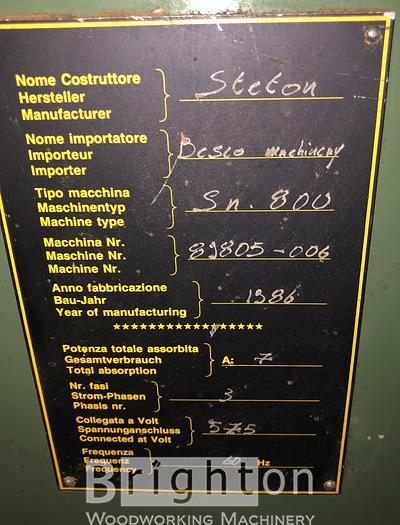 Nome Costruttore
Hersteller
Manufacturer
Steton
Nome importatore
Importeur
Importer
Desco machinery
Tipo macchina
Maschinentyp
Machine type
Sn. 800
Macchina Nr.
Maschine Nr.
Machine Nr.
89805-006
Anno fabbricazione
Bau-Jahr
Year of manufacturing
1986
*****************
Potenza totale assorbita
Gesamtverbrauch
Total absorption
A: 7
Nr. fasi
Strom-Phasen
Phasis nr.
3
Collegata a Volt
Spannunganschluss
Connected at Volt
575
Frequenza
Frequenz
Frequency
60 Hz
Brighton
WOODWORKING MACHINERY